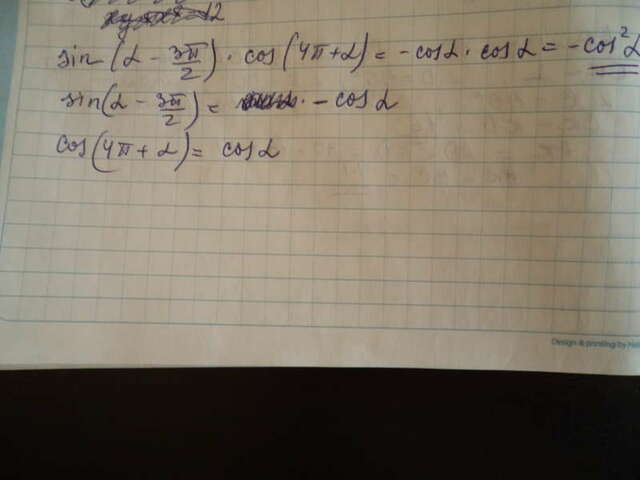 12
sin(α - 3π/2) · cos(4π+α) = -cosα · cosα = -cos²α
sin(α - 3π/2) = - cosα
cos(4π+α) = cosα
Design & printing by